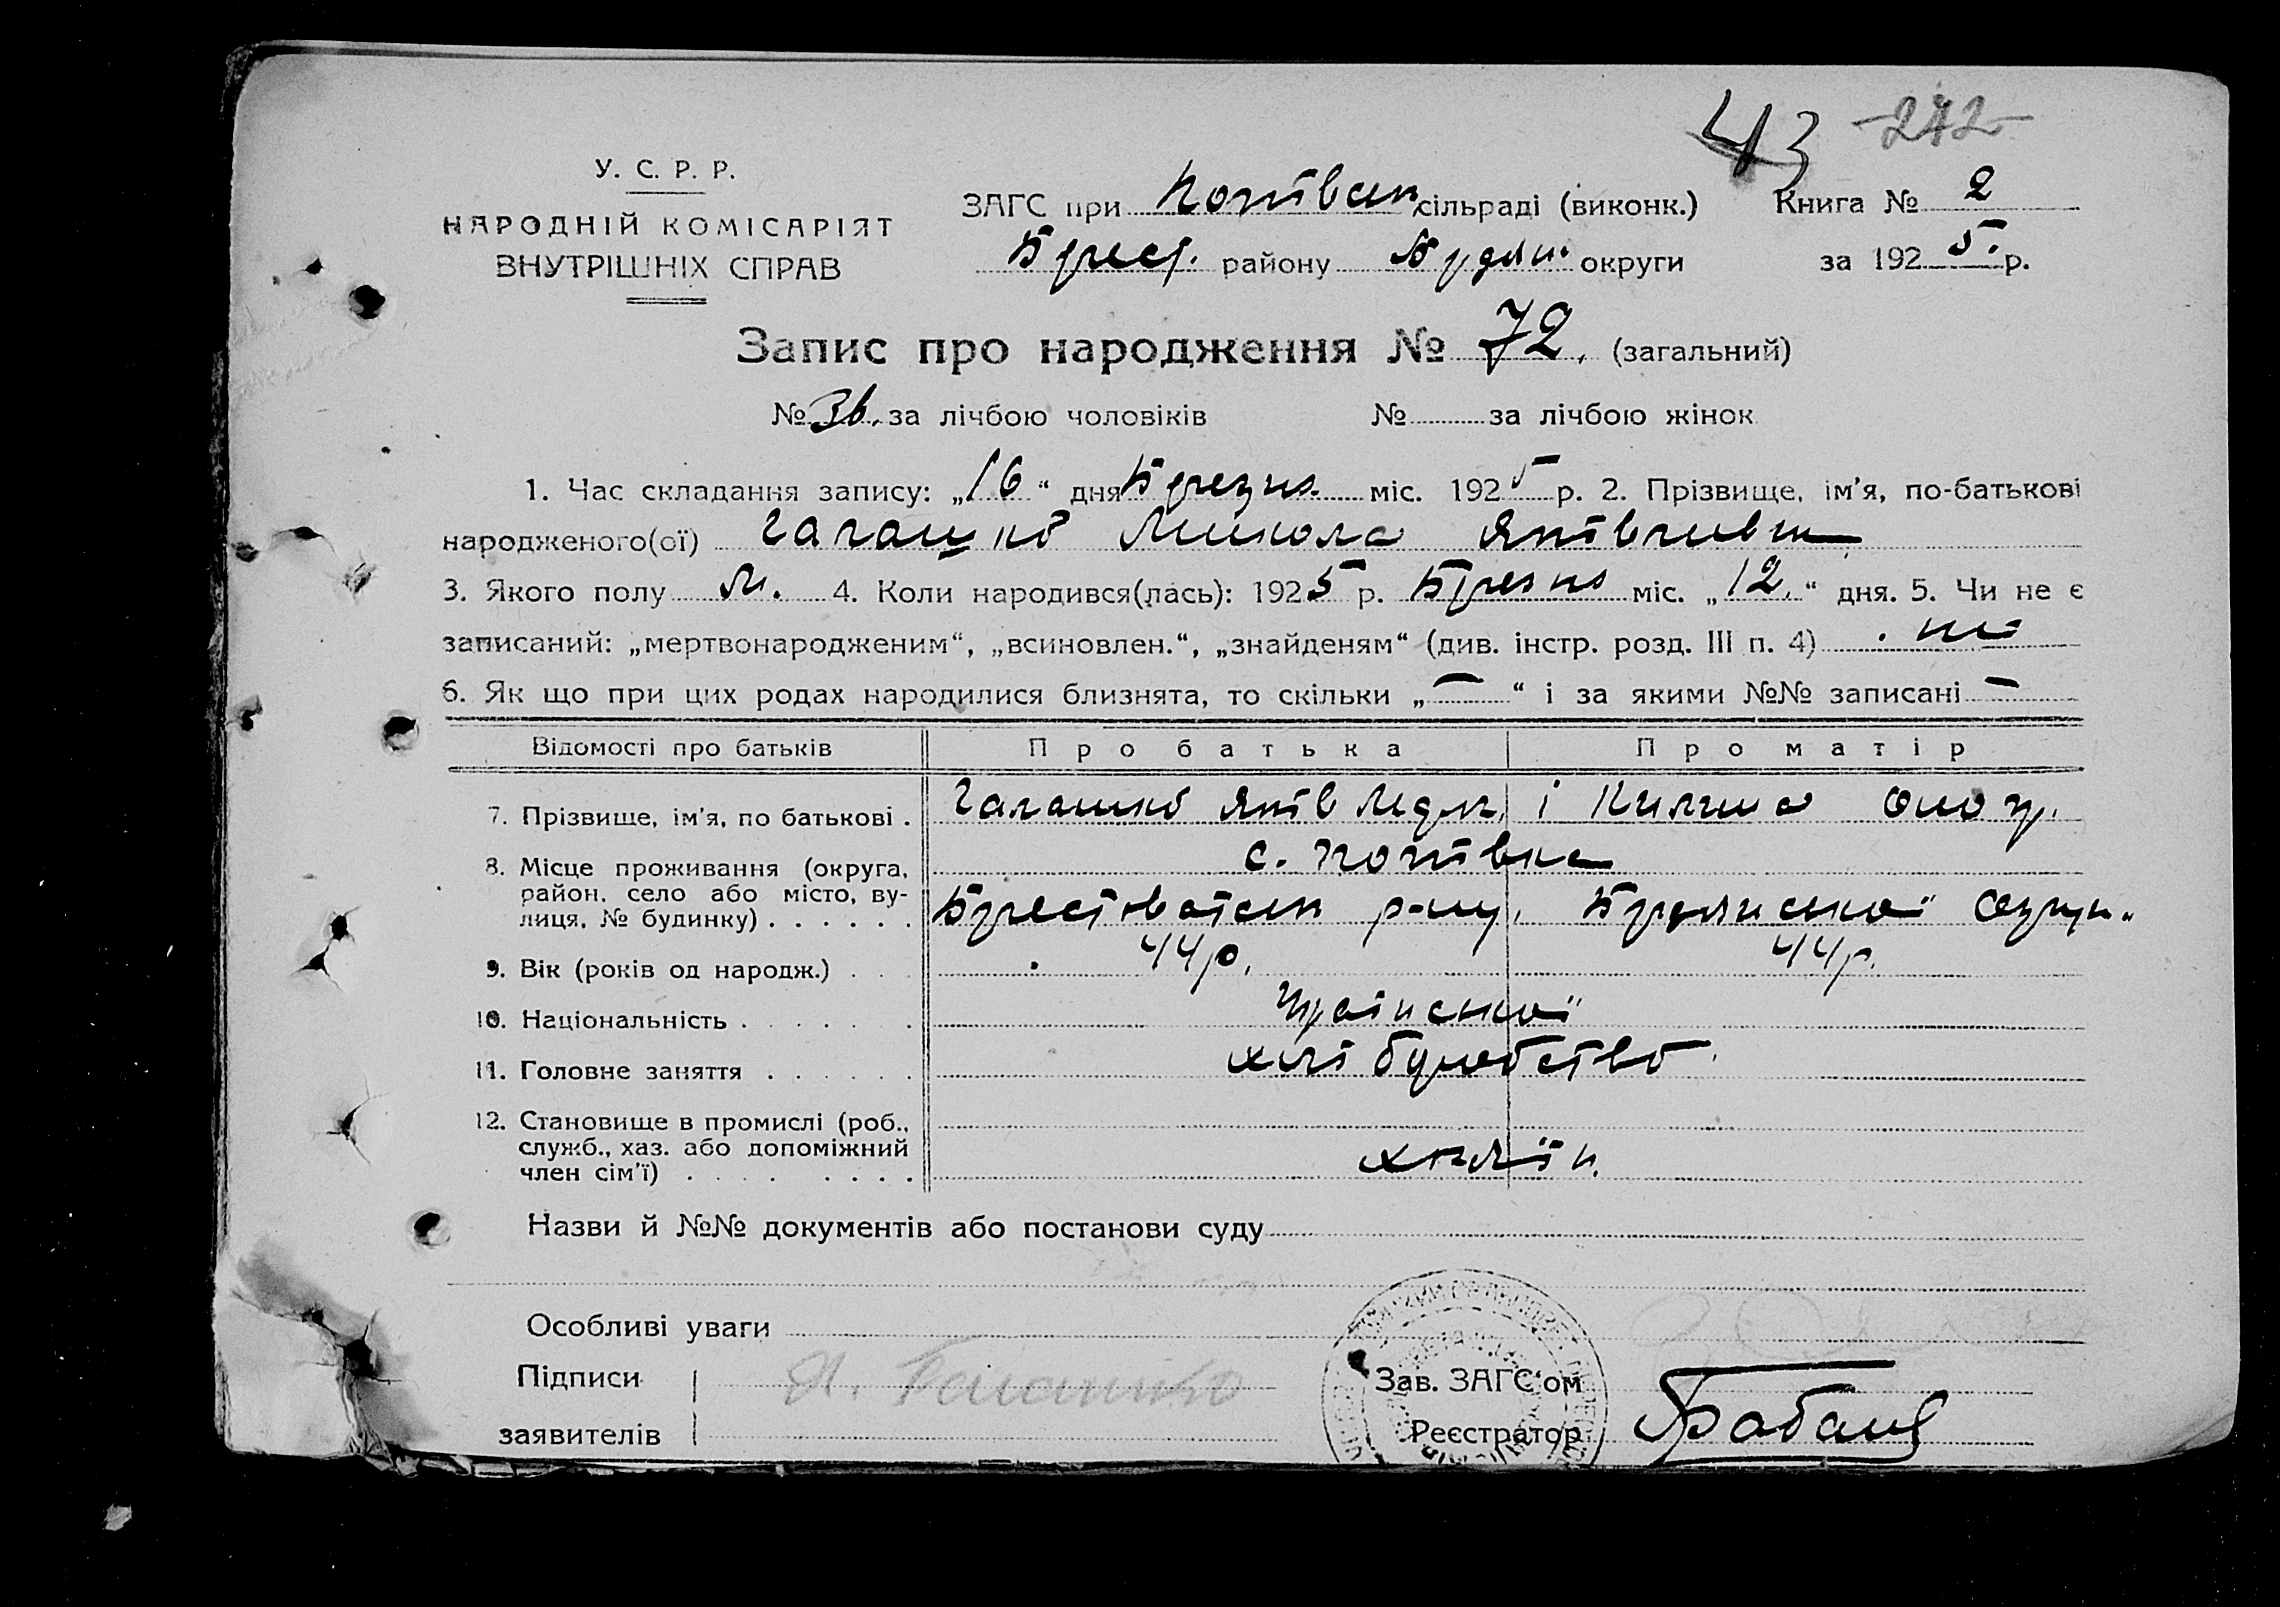 43 272
У. С. Р. Р.
НАРОДНІЙ КОМІСАРІЯТ
ВНУТРІШНІХ СПРАВ
ЗАГС при сільраді (виконк.) Книга № 2
Брест. району округи за 1925 р.
Запис про народження № 72. (загальний)
№ за лічбою чоловіків № за лічбою жінок
1. Час складання запису: „16“ дня Березня міс. 1925 р. 2. Прізвище, ім'я, по-батькові
народженого(ої) Галашко Микола Яківлевич
3. Якого полу М. 4. Коли народився(лась): 1925 р. Березня міс. „12.“ дня. 5. Чи не є
записаний: „мертвонародженим“, „всиновлен.“, „знайденям“ (див. інстр. розд. III п. 4) ні
6. Як що при цих родах народилися близнята, то скільки „—“ і за якими №№ записані —
Відомості про батьків Про батька Про матір
7. Прізвище, ім'я, по батькові . Галашко Яків і Килина
8. Місце проживання (округа, с.
район, село або місто, ву-
лиця, № будинку) . . . . . . р-ну,
9. Вік (років од народж.) . . . 44 р. 44 р.
10. Національність . . . . . .
11. Головне заняття . . . . . . хліборобство
12. Становище в промислі (роб.,
служб., хаз. або допоміжний
член сім'ї) . . . . . . . .
Назви й №№ документів або постанови суду
Особливі уваги
Підписи Я. Галашко Зав. ЗАГС'ом
заявителів Реєстратор